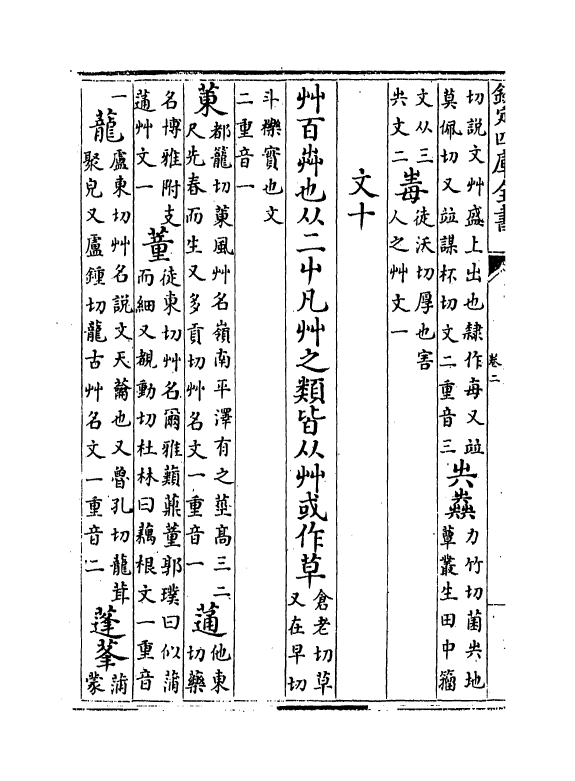 欽定四庫全書
卷二
切說文艸盛上出也隸作每又竝
莫佩切又竝謀杯切文二重音三
圥
力竹切菌圥地
蕈叢生田中籀
文从三
圥文二
毒
徒沃切厚也害
人之艸文一
文十
艸百芔也从二屮凡艸之類皆从艸或作草
倉老切草
又在早切
斗櫟實也文
二重音一
菄
都籠切菄風艸名嶺南平澤有之莖髙三二
尺先春而生又多貢切艸名文一重音一
蓪
他東
切藥
名博雅附支
蓪艸文一
蕫
徒東切艸名爾雅蘱薡蕫郭璞曰似蒲
而細又覩動切杜林曰藕根文一重音
一
蘢
盧東切艸名說文天蘥也又魯孔切蘢茸
聚皃又盧鍾切蘢古艸名文一重音二
蓬莑
蒲
蒙